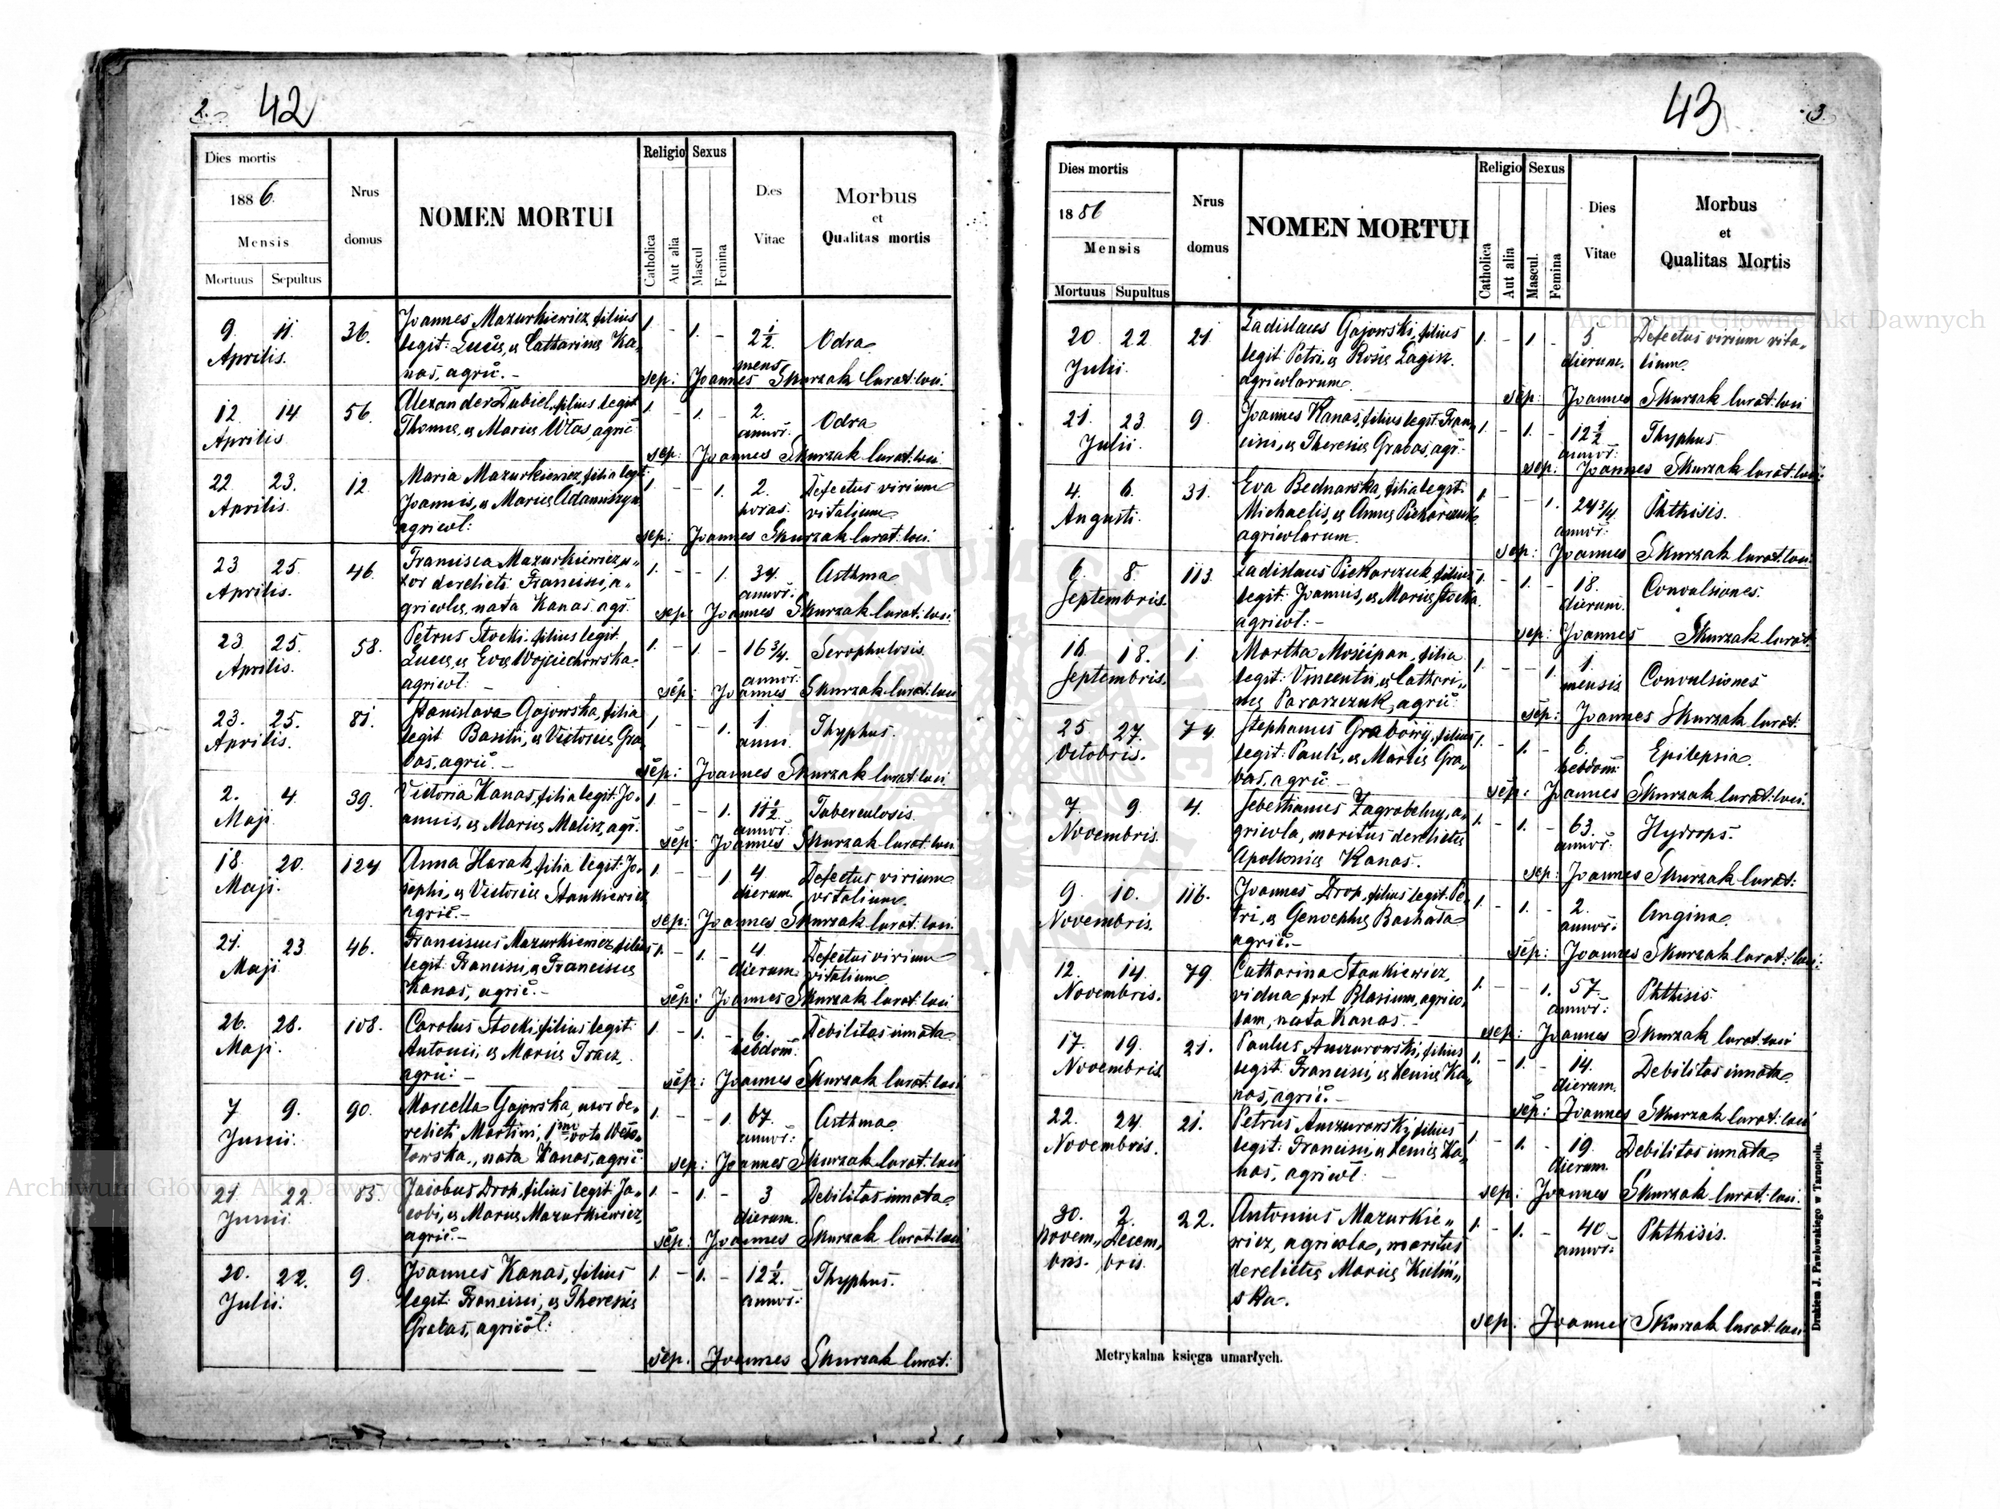 2.
42
Dies mortis
1886.
Mensis
Mortuus Sepultus
Nrus
domus
NOMEN MORTUI
Religio
Catholica
Aut alia
Sexus
Mascul
Femina
Dies
Vitae
Morbus
et
Qualitas mortis
9 11 36. Joannes Mazurkiewicz, filius 1. - 1. - 2 1/2 Odra
Aprilis. legit: Lucæ, & Catharinæ Ka-
nas, agric. - mens
sep: Joannes Skurzak Curat: loci
12 14 56. Alexander Dubiel, filius legit 1. - 1. - 2. Odra
Aprilis Thomæ, & Mariæ Wlas agric annor:
sep: Joannes Skurzak Curat: loci
22 23. 12. Maria Mazurkiewicz, filia legit: 1. - - 1. 2. Defectus virium
Aprilis. Joannis, & Mariæ Adamiszyn horas. vitalium
agricol:
sep: Joannes Skurzak Curat: loci
23 25. 46. Francisca Mazurkiewicz, u- 1. - - 1. 34. Asthma
Aprilis. xor derelicti Francisci, a- annor:
gricolæ, nata Kanas, agr.
sep: Joannes Skurzak Curat: loci.
23 25. 58. Petrus Stocki, filius legit. 1. - 1. - 16 3/4. Scrophulosis.
Aprilis. Lucæ, & Evæ Wojciechowska annor:
agricol: -
sep: Joannes Skurzak Curat: loci
23. 25. 81. Stanislava Gajowska, filia 1. - - 1. 1. Thyphus.
Aprilis. legit Basilii, & Victoriæ Gra- anni.
bas, agric. -
sep: Joannes Skurzak Curat: loci.
2. 4. 39. Victoria Kanas, filia legit: Jo- 1. - - 1. 11 1/2 Tuberculosis.
Maji annis, & Mariæ Malik, agr. annor:
sep: Joannes Skurzak Curat: loci
18. 20. 124. Anna Harak, filia legit: Jo- 1. - - 1. 4. Defectus virium
Maji. sephi, & Victoriæ Stankiewicz dierum. vitalium.
agric. -
sep: Joannes Skurzak Curat: loci.
21. 23 46. Franciscus Mazurkiewicz, filius 1. - 1. - 4 Defectus virium
Maji legit: Francisci, & Franciscæ dierum. vitalium
Kanas, agric. -
sep: Joannes Skurzak Curat: loci
26. 28. 108. Carolus Stocki, filius legit: 1. - 1. - 6. Debilitas innata
Maji. Antonii, & Mariæ hebdom:
agric: -
sep: Joannes Skurzak Curat: loci
7 9. 90. Marcella Gajowska, uxor de- 1. - - 1. 67. Asthma
Junii relicti Martini, 1mo voto annor:
nata Kanas, agric
sep: Joannes Skurzak Curat: loci
21. 22. 83. Jacobus Drop, filius legit Ja- 1. - 1. - 3 Debilitas innata
Junii cobi, & Mariæ Mazurkiewicz, dierum.
agric. -
sep: Joannes Skurzak Curat: loci
20. 22. 9. Joannes Kanas, filius 1. - 1. - 12 1/2. Thyphus.
Julii. legit: Francisci, & Theresiæ annor:
Grabas, agricol:
sep. Joannes Skurzak Curat:
43
3.
Dies mortis
1886
Mensis
Mortuus Supultus
Nrus
domus
NOMEN MORTUI
Religio
Catholica
Aut alia
Sexus
Mascul.
Femina
Dies
Vitae
Morbus
et
Qualitas Mortis
20 22. 21. Ladislaus Gajowski, filius 1. - 1 - 5 Defectus virium vita-
Julii. legit: Petri, & Rosæ Łagisz dierum. lium.
agricolarum
sep: Joannes Skurzak Curat: loci
21. 23. 9. Joannes Kanas, filius legit: Fran- 1. - 1. - 12 1/2 Thyphus
Julii. cisci, & Theresiæ Grabas, agr. annor:
sep: Joannes Skurzak Curat: loci:
4. 6. 31. Eva Bednarska, filia legit: 1. - - 1. 24 3/4 Phthisis.
Augusti. Michaelis, & Annæ Piekarczuk annor:
agricolarum.
sep: Joannes Skurzak Curat: loci.
6. 8. 113. Ladislaus Piekarczuk, filius 1. - 1. - 18. Convulsiones.
Septembris. legit: Joannis, & Mariæ Stocka dierum.
agricol: -
sep: Joannes Skurzak Curat:
16 18. 1. Martha Mościpan, filia 1. - - 1. 1. Convulsiones
Septembris. legit: Vincentii, & Cathari- mensis
næ agric:
sep: Joannes Skurzak Curat:
25. 27. 74. Stephanus Grabowy, filius 1. - 1. - 6. Epilepsia.
Octobris. legit: Pauli, & Mariæ Gra- hebdom:
bas, agric -
sep: Joannes Skurzak Curat: loci.
7 9 4. Sebestianus Zagrobelny, a- 1. - 1. - 63. Hydrops.
Novembris. gricola, maritus derelictæ annor:
Apolloniæ Kanas.
sep: Joannes Skurzak Curat:
9 10. 116. Joannes Drop, filius legit: Pe- 1. - 1. - 2. Angina
Novembris. tri, & Genoephæ annor:
agric. -
sep: Joannes Skurzak Curat: loci:
12. 14. 79. Catharina Stankiewicz, 1. - - 1. 57. Phthisis
Novembris. vidua post Blasium, agrico- annor:
lam, nata Kanas. -
sep: Joannes Skurzak Curat: loci
17. 19. 21. Paulus filius 1. - 1. - 14. Debilitas innata
Novembris legit: Francisci, & Xeniæ Ka- dierum.
nas, agric. -
sep: Joannes Skurzak Curat: loci
22. 24. 21. Petrus filius 1. - 1. - 19. Debilitas innata
Novembris. legit: Francisci, & Xeniæ Ka- dierum.
nas, agricol: -
sep: Joannes Skurzak Curat: loci.
30. 2. 22. Antonius Mazurkie- 1. - 1. - 40. Phthisis.
Novem- Decem- wicz, agricola, maritus annor:
bris. bris. derelictæ Mariæ Kuliń-
ska.
sep: Joannes Skurzak Curat: loci
Metrykalna księga umarłych.
Drukiem J. Pawłowskiego w Tarnopolu.
Archiwum Główne Akt Dawnych
Archiwum Główne Akt Dawnych